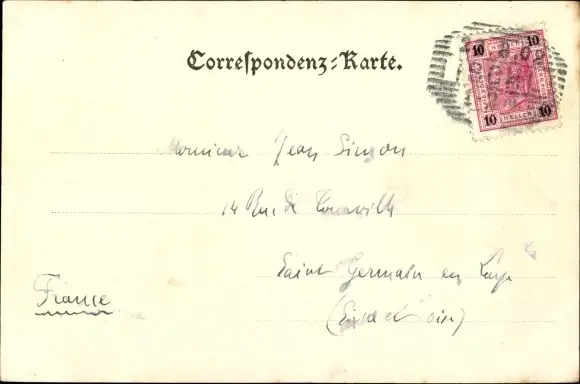 Correspondenz-Karte.
10 10
10 HELLER 10
Monsieur Jean Simon
14 Rue de
Saint Germain en Laye
France
(Seine et Oise)